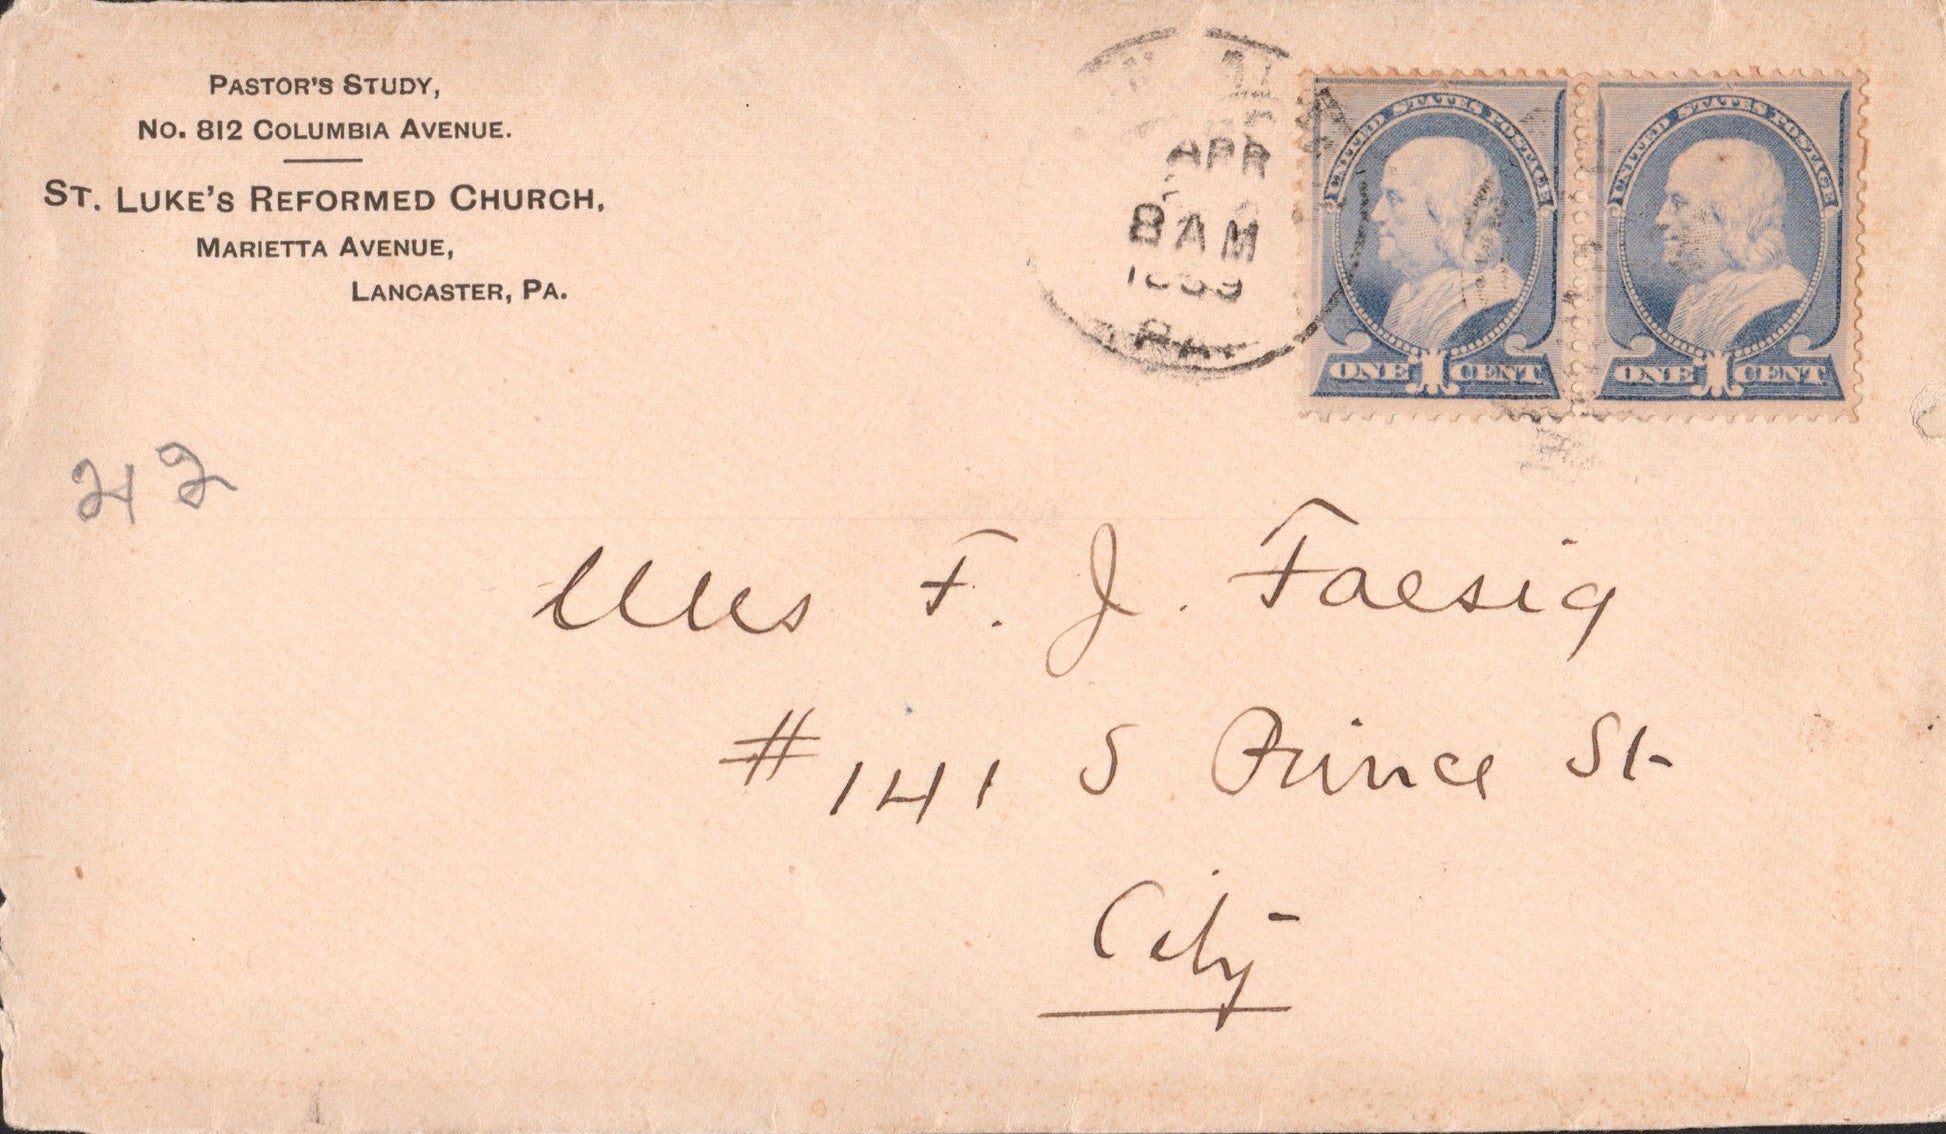 PASTOR'S STUDY,
NO. 812 COLUMBIA AVENUE.
ST. LUKE'S REFORMED CHURCH,
MARIETTA AVENUE,
LANCASTER, PA.
APR
8 AM
PA.
UNITED STATES POSTAGE
ONE 1 CENT
UNITED STATES POSTAGE
ONE 1 CENT
212
Mrs F. J. Faesig
# 141 S Prince St
City